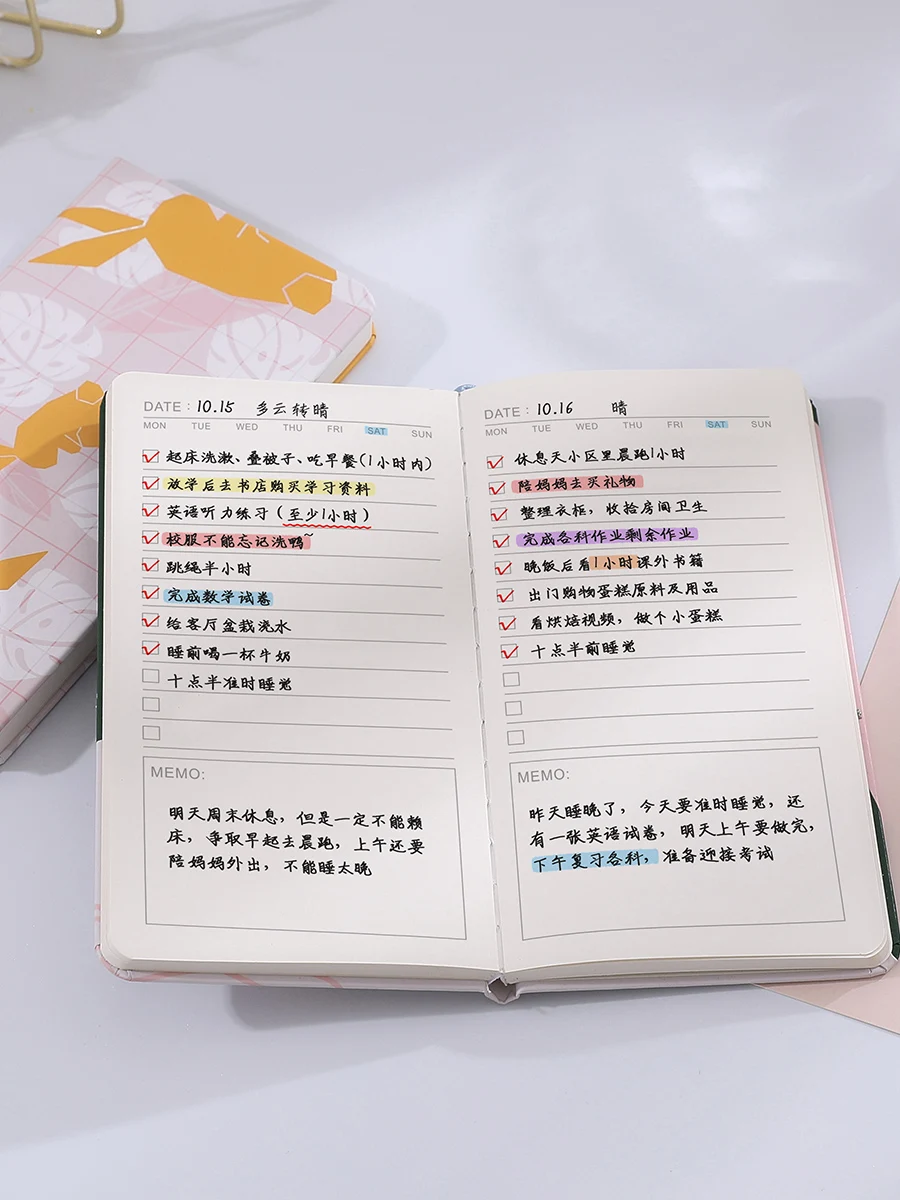 DATE: 10.15 多云转晴
MON TUE WED THU FRI SAT SUN
起床洗漱、叠被子、吃早餐(1小时内)
放学后去书店购买学习资料
英语听力练习(至少1小时)
校服不能忘记洗鸭~
跳绳半小时
完成数学试卷
给客厅盆栽浇水
睡前喝一杯牛奶
十点半准时睡觉
MEMO:
明天周末休息,但是一定不能赖
床,争取早起去晨跑,上午还要
陪妈妈外出,不能睡太晚
DATE: 10.16 晴
MON TUE WED THU FRI SAT SUN
休息天小区里晨跑1小时
陪妈妈去买礼物
整理衣柜,收拾房间卫生
完成各科作业剩余作业
晚饭后看1小时课外书籍
出门购物蛋糕原料及用品
看烘焙视频,做个小蛋糕
十点半前睡觉
MEMO:
昨天睡晚了,今天要准时睡觉,还
有一张英语试卷,明天上午要做完,
下午复习各科,准备迎接考试